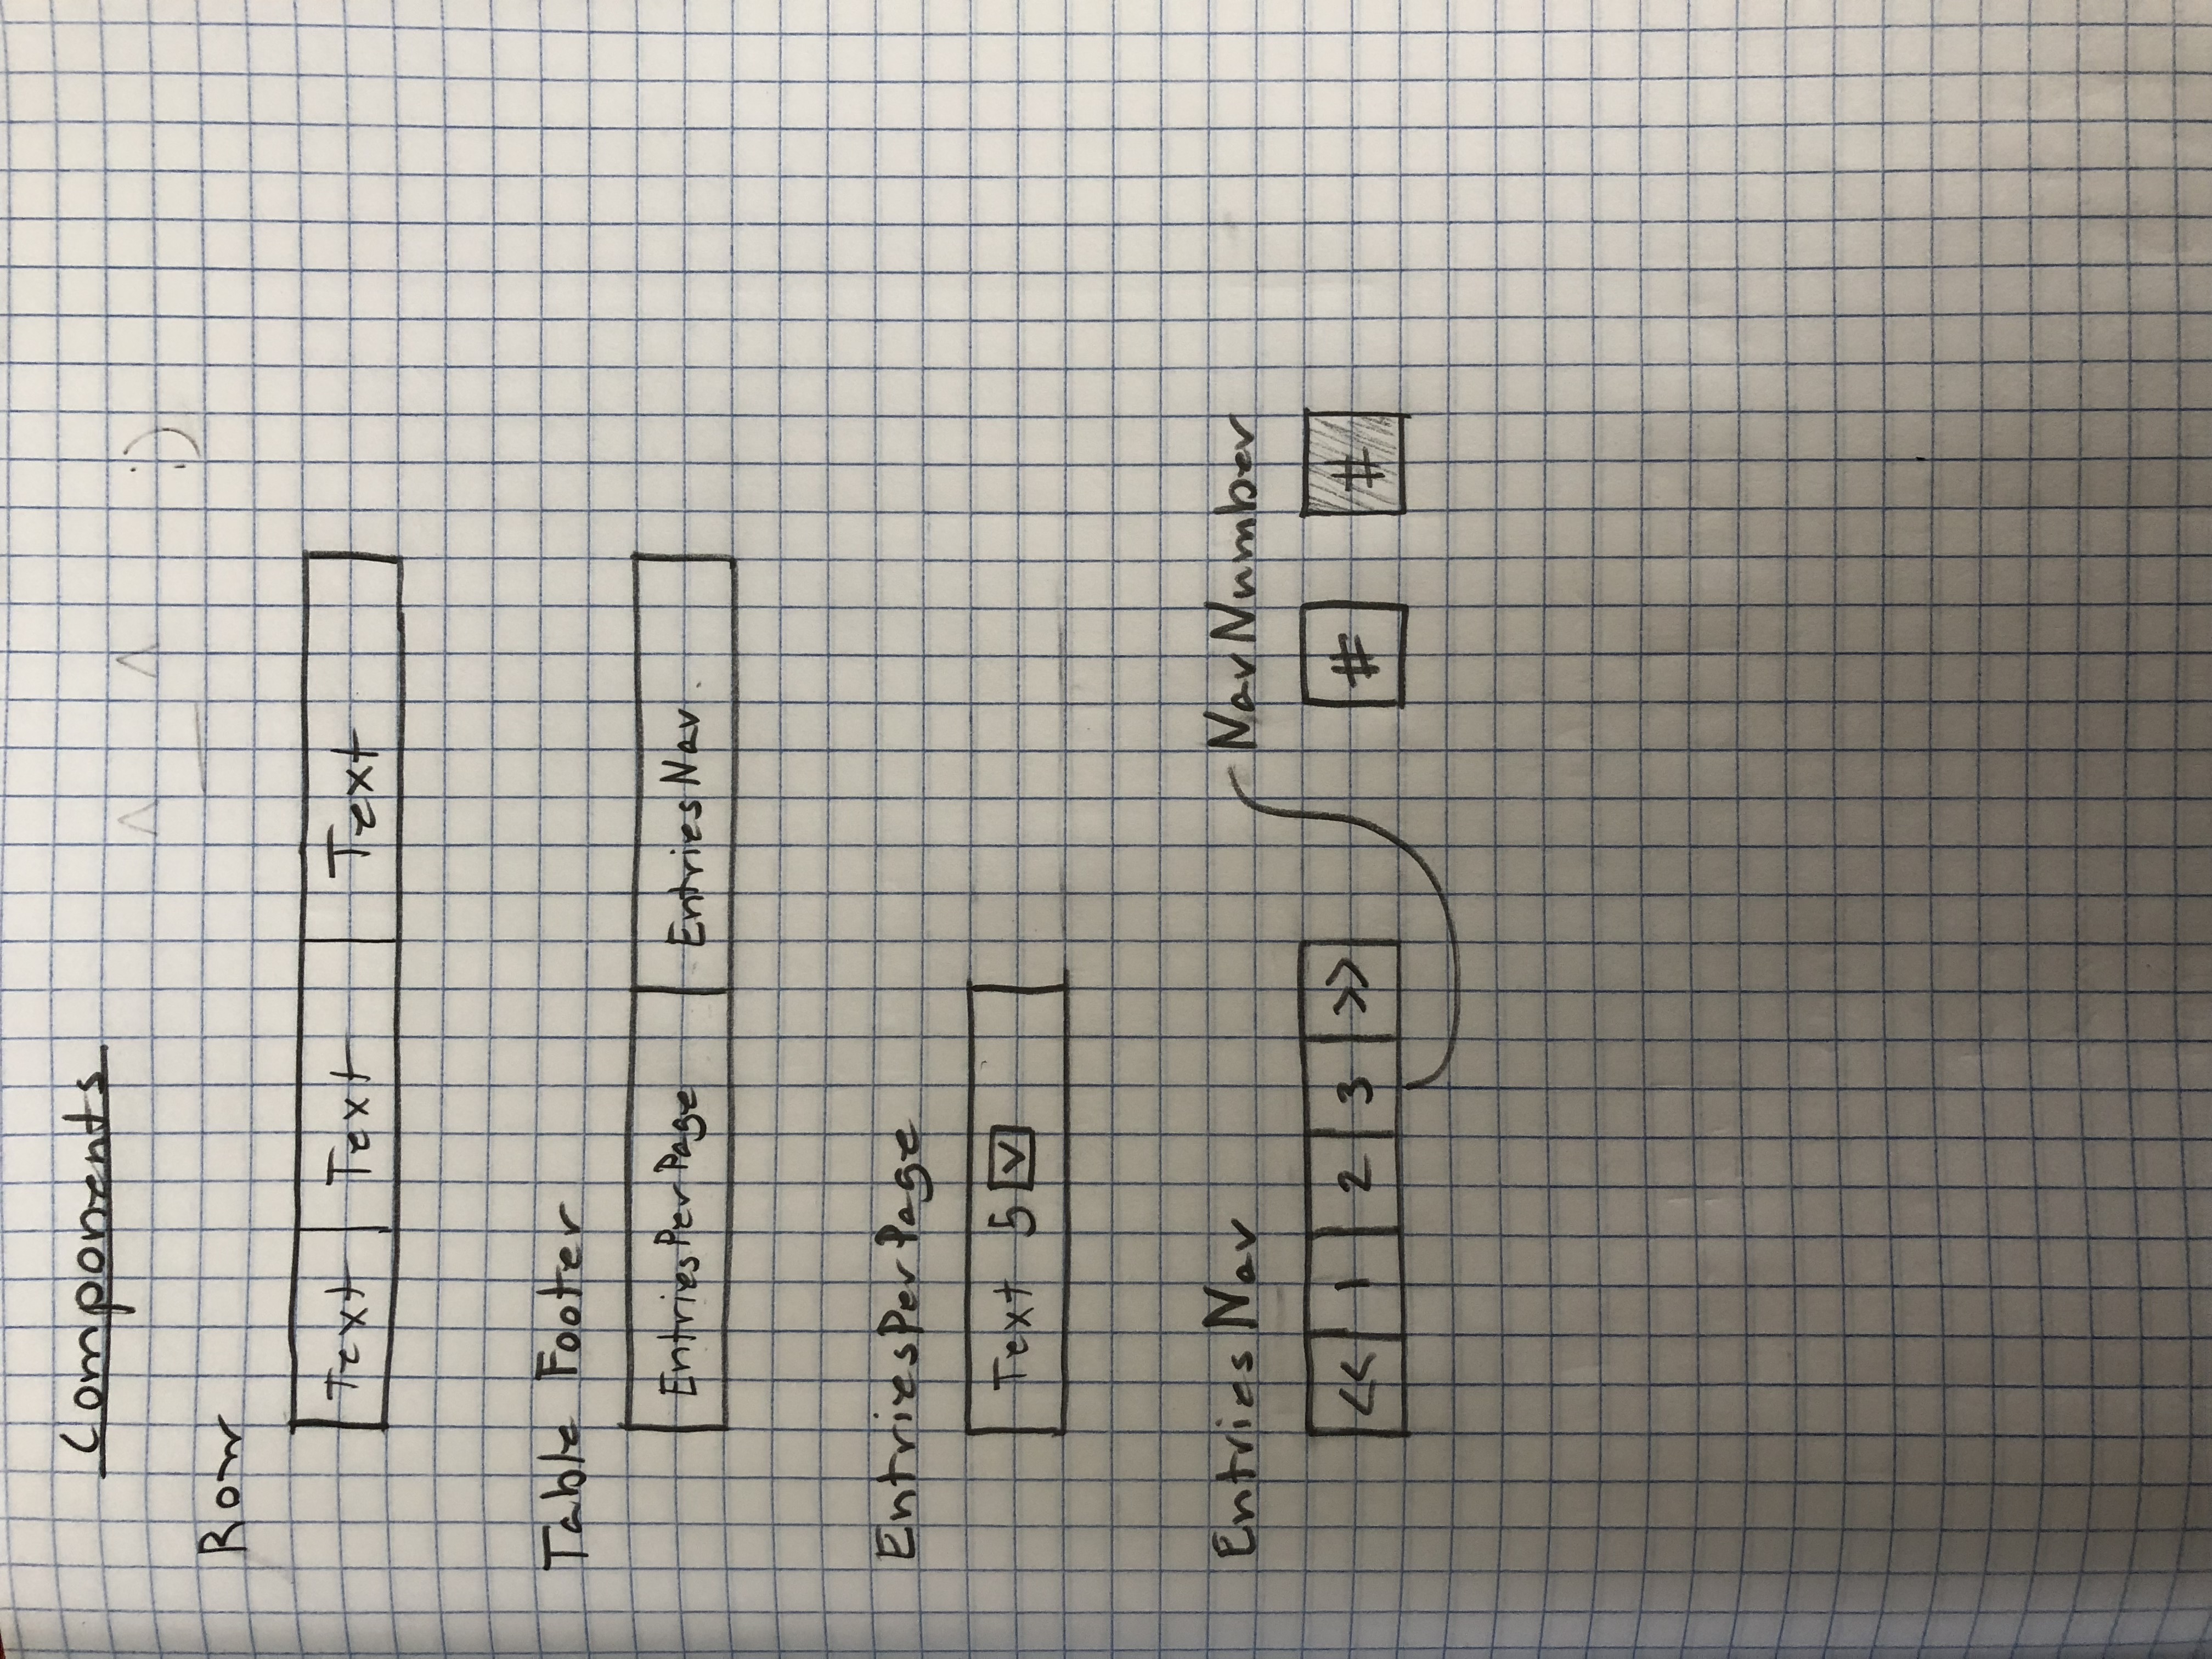 Components
^ _ ^ :)
Row
Text Text Text
Table Footer
EntriesPerPage EntriesNav.
EntriesPerPage
Text 5 v
EntriesNav NavNumber
<< 1 2 3 >> # #